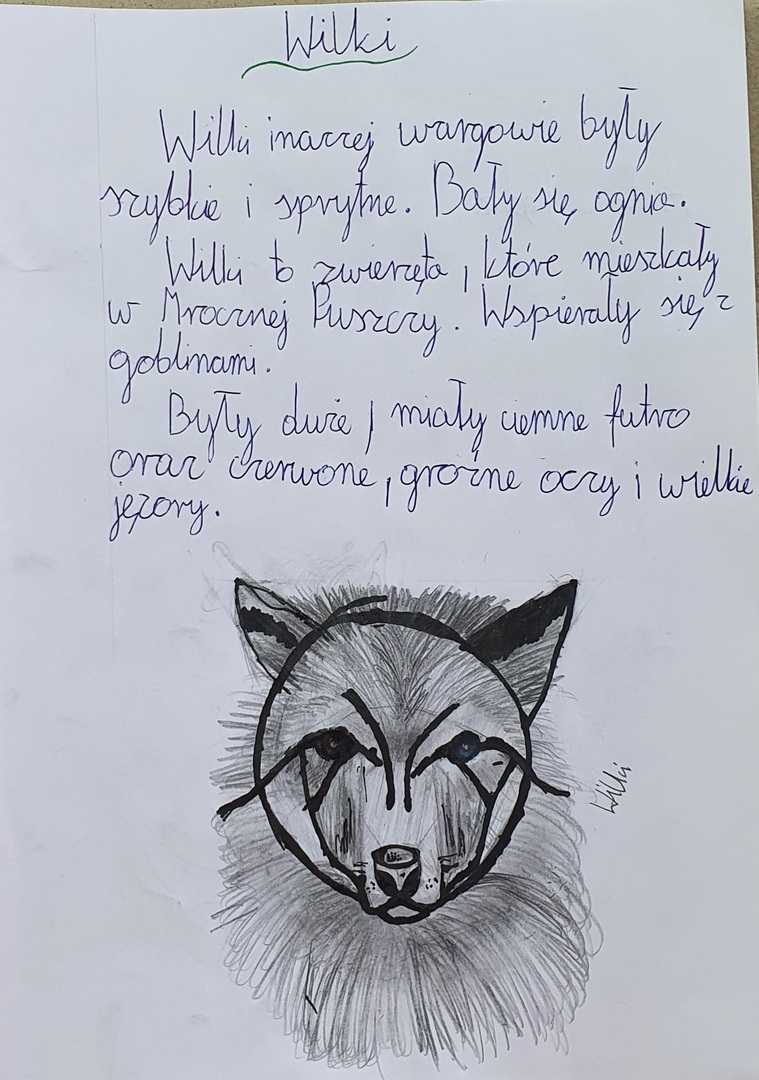 Wilki
Wilki inaczej wargowie były
szybkie i sprytne. Bały się ognia.
Wilki to zwierzęta, które mieszkały
w Mrocznej Puszczy. Wspierały się z
goblinami.
Były duże, miały ciemne futro
oraz czerwone, groźne oczy i wielkie
jęzory.
Wilki